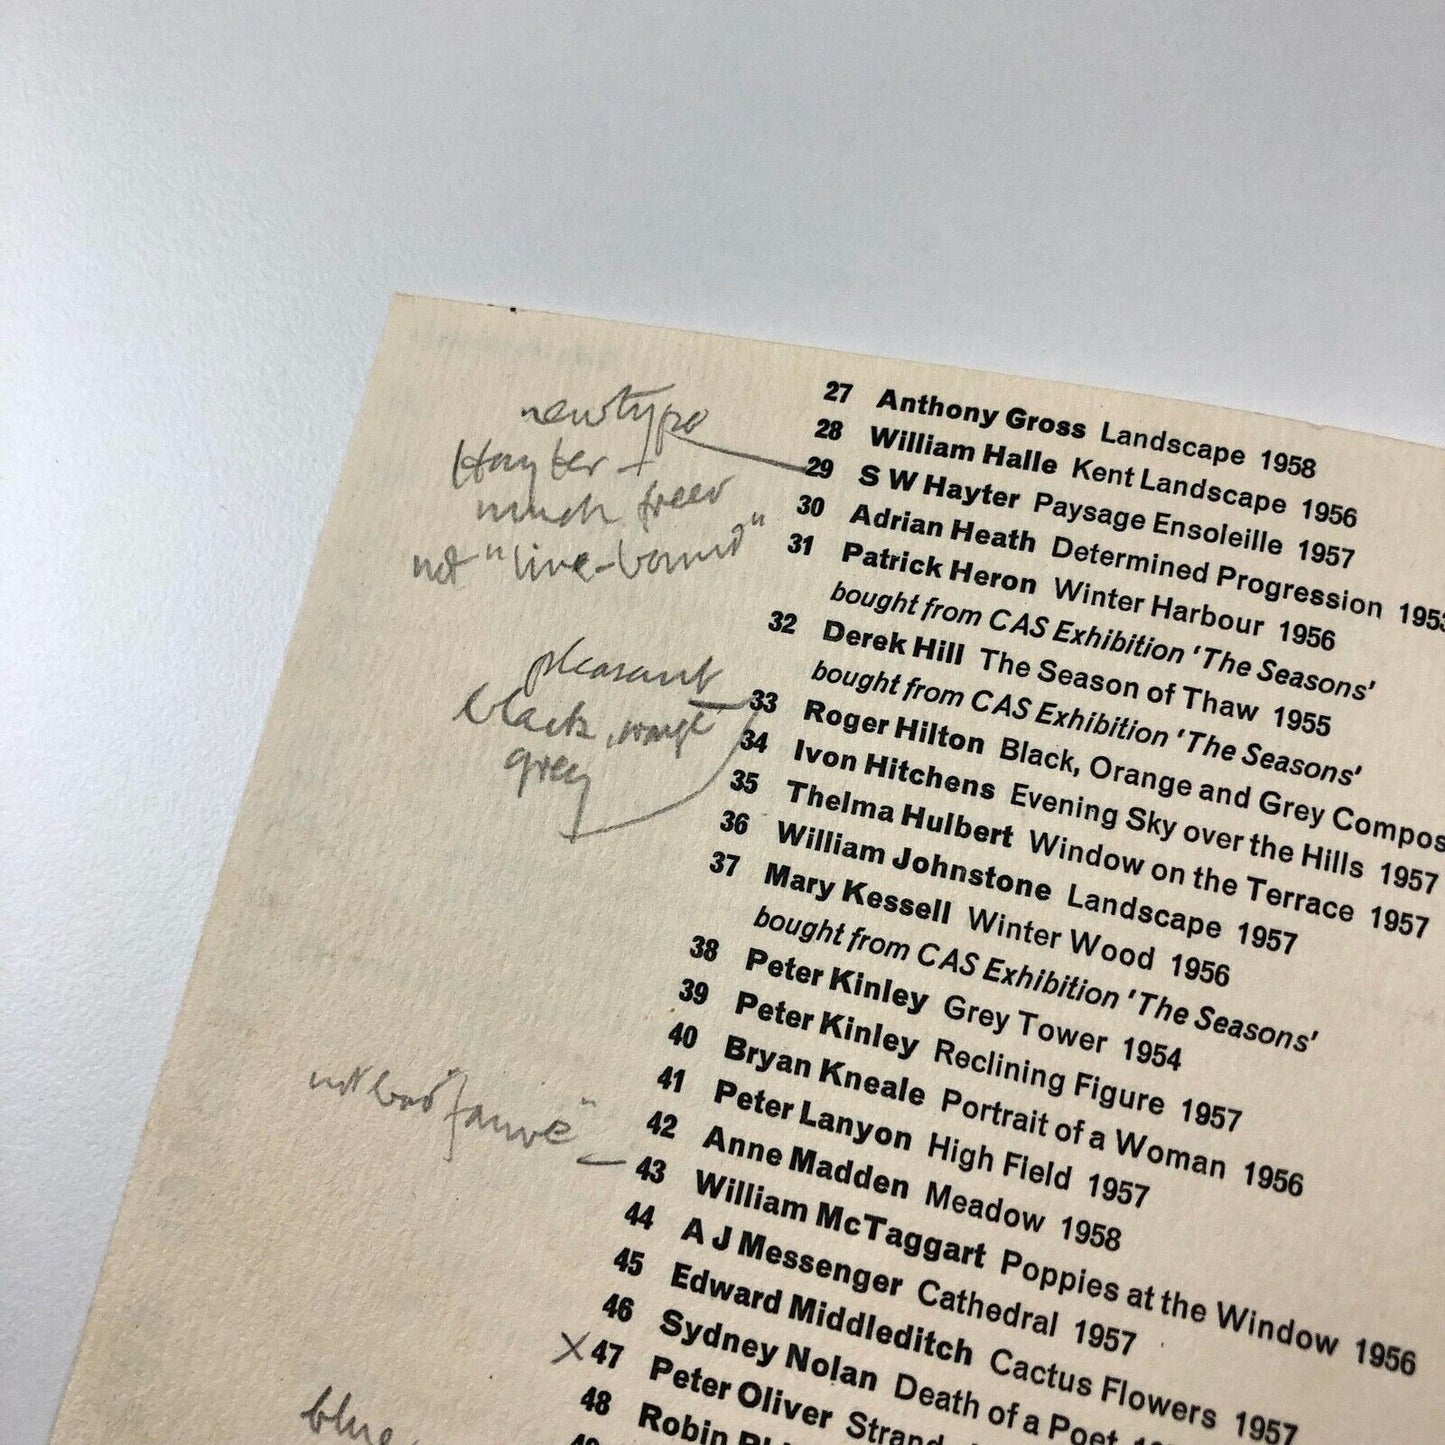 27 Anthony Gross Landscape 1958
28 William Halle Kent Landscape 1956
29 S W Hayter Paysage Ensoleille 1957
30 Adrian Heath Determined Progression 1953
31 Patrick Heron Winter Harbour 1956
bought from CAS Exhibition 'The Seasons'
32 Derek Hill The Season of Thaw 1955
bought from CAS Exhibition 'The Seasons'
33 Roger Hilton Black, Orange and Grey Compos
34 Ivon Hitchens Evening Sky over the Hills 1957
35 Thelma Hulbert Window on the Terrace 1957
36 William Johnstone Landscape 1957
37 Mary Kessell Winter Wood 1956
bought from CAS Exhibition 'The Seasons'
38 Peter Kinley Grey Tower 1954
39 Peter Kinley Reclining Figure 1957
40 Bryan Kneale Portrait of a Woman 1956
41 Peter Lanyon High Field 1957
42 Anne Madden Meadow 1958
43 William McTaggart Poppies at the Window 1956
44 A J Messenger Cathedral 1957
45 Edward Middleditch Cactus Flowers 1957
46 Sydney Nolan Death of a Poet
X 47 Peter Oliver Strand
48 Robin
new type
Hayter -
much freer
not "line-bound"
pleasant
black, orange
grey
not bad "fauve"
blue